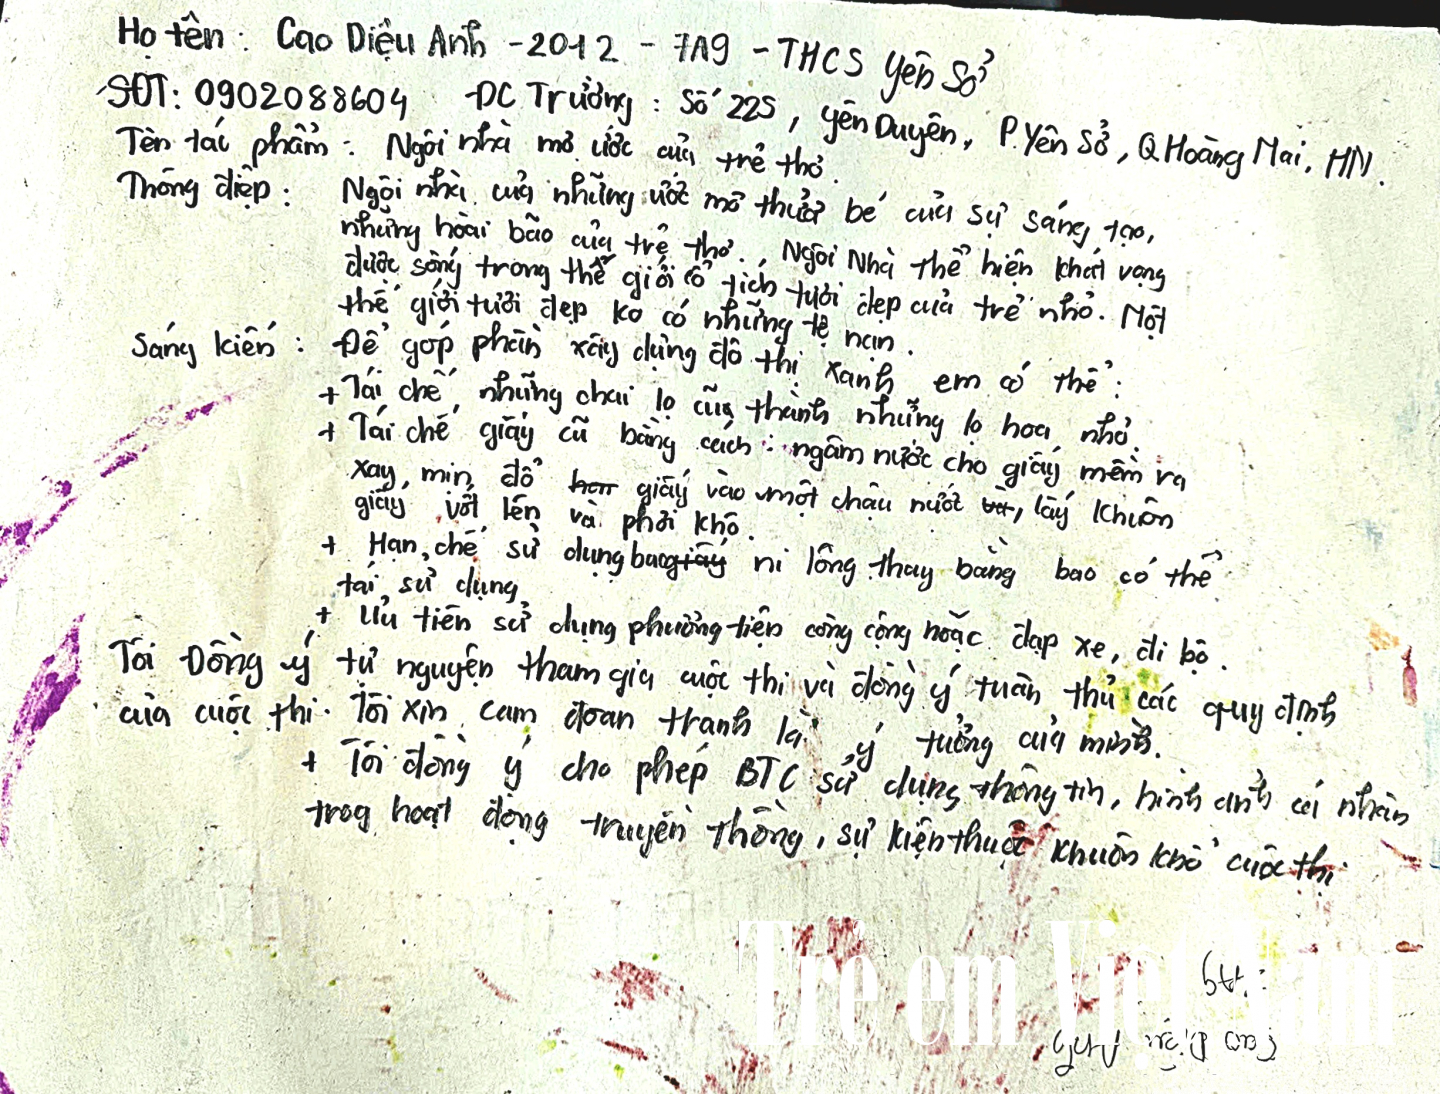 Họ tên: Cao Diệu Anh - 2012 - 7A9 - THCS Yên Sở
SĐT: 0902088604 ĐC Trường: Số 225, Yên Duyên, P.Yên Sở, Q.Hoàng Mai, HN.
Tên tác phẩm: Ngôi nhà mơ ước của trẻ thơ.
Thông điệp: Ngôi nhà của những ước mơ thưở bé của sự sáng tạo,
những hoài bão của trẻ thơ. Ngôi Nhà thể hiện khát vọng
được sống trong thế giới cổ tích tươi đẹp của trẻ nhỏ. Một
thế giới tươi đẹp ko có những tệ nạn.
Sáng kiến: Để góp phần xây dựng đô thị xanh em có thể:
+ Tái chế những chai lọ cũ thành những lọ hoa nhỏ.
+ Tái chế giấy cũ bằng cách: ngâm nước cho giấy mềm ra
xay mịn, đổ giấy vào một chậu nước, lấy khuôn
giấy vớt lên và phơi khô.
+ Hạn chế sử dụng bao giấy ni lông thay bằng bao có thể
tái sử dụng
+ Ưu tiên sử dụng phương tiện công cộng hoặc đạp xe, đi bộ.
Tôi Đồng ý tự nguyện tham gia cuộc thi và đồng ý tuân thủ các quy định
của cuộc thi. Tôi xin cam đoan tranh là ý tưởng của mình.
+ Tôi đồng ý cho phép BTC sử dụng thông tin, hình ảnh cá nhân
trog hoạt động truyền thông, sự kiện thuộc khuôn khổ cuộc thi
Trẻ em Việt Nam
7A9
Cao Diệu Anh